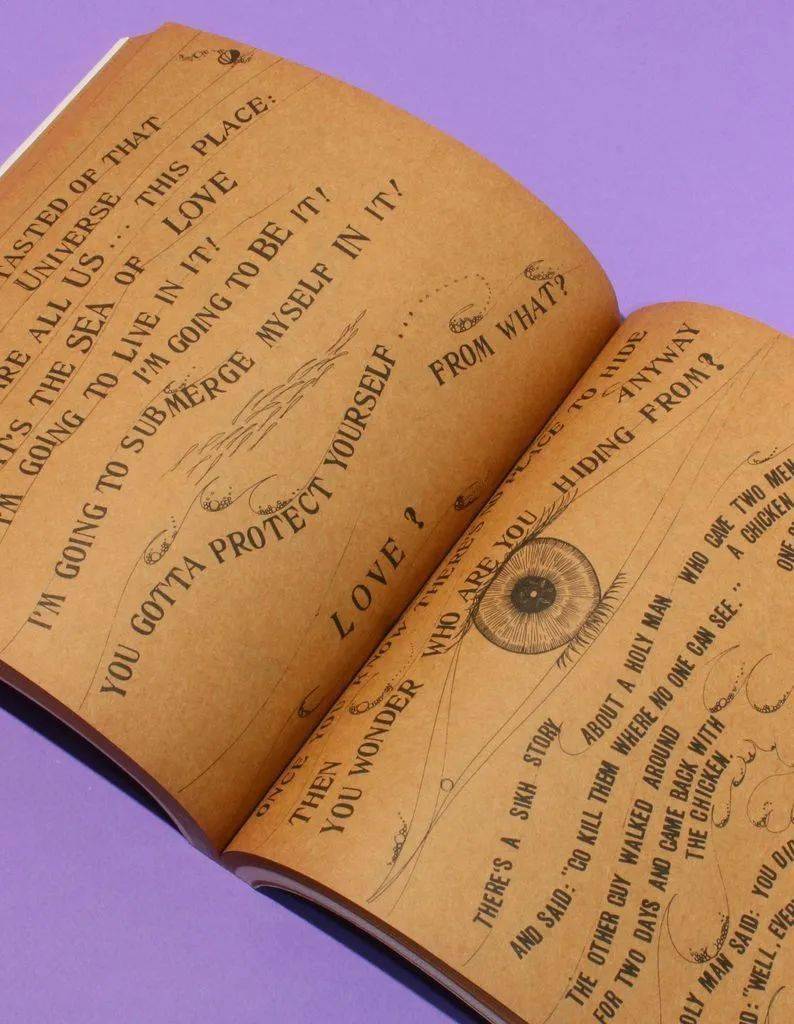 TASTED OF THAT
UNIVERSE
ARE ALL US ... THIS PLACE:
IT'S THE SEA OF LOVE
I'M GOING TO LIVE IN IT!
I'M GOING TO BE IT!
I'M GOING TO SUBMERGE MYSELF IN IT!
YOU GOTTA PROTECT YOURSELF ...
FROM WHAT?
LOVE?
ONCE YOU KNOW THERE'S PLACE TO HIDE
THEN ANYWAY
YOU WONDER WHO ARE YOU HIDING FROM?
THERE'S A SIKH STORY ABOUT A HOLY MAN WHO GAVE TWO MEN
A CHICKEN
AND SAID: "GO KILL THEM WHERE NO ONE CAN SEE."
THE OTHER GUY WALKED AROUND
FOR TWO DAYS AND CAME BACK WITH
THE CHICKEN
HOLY MAN SAID: YOU DID
"WELL, EVERY